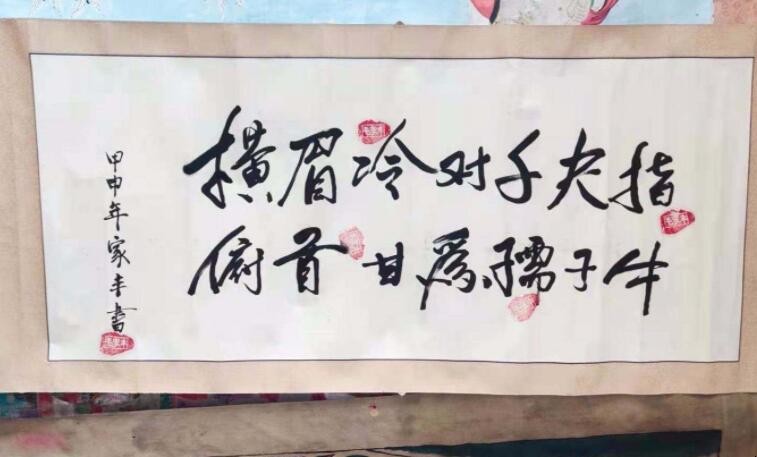 横眉冷对千夫指
俯首甘为孺子牛
甲申年家丰书